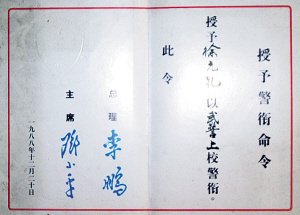 授予警衔命令
授予徐以武警上校警衔。
此令
总理 李鹏
主席 邓小平
一九八八年十二月二十日